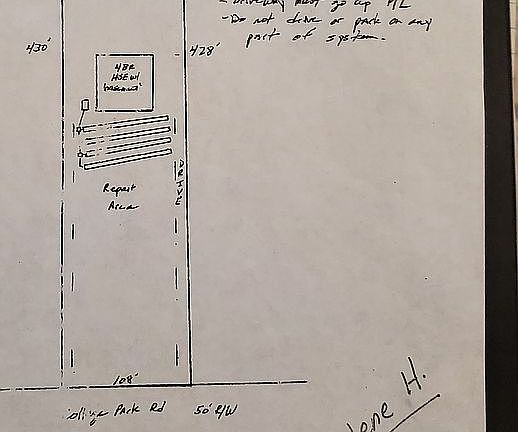 - Driveway must go up P/L
- Do not drive or park on any
part of system.
430'
428'
4 BR
HSE w/
basement
DRIVE
Repair
Area
108'
College Park Rd 50' R/W
H.